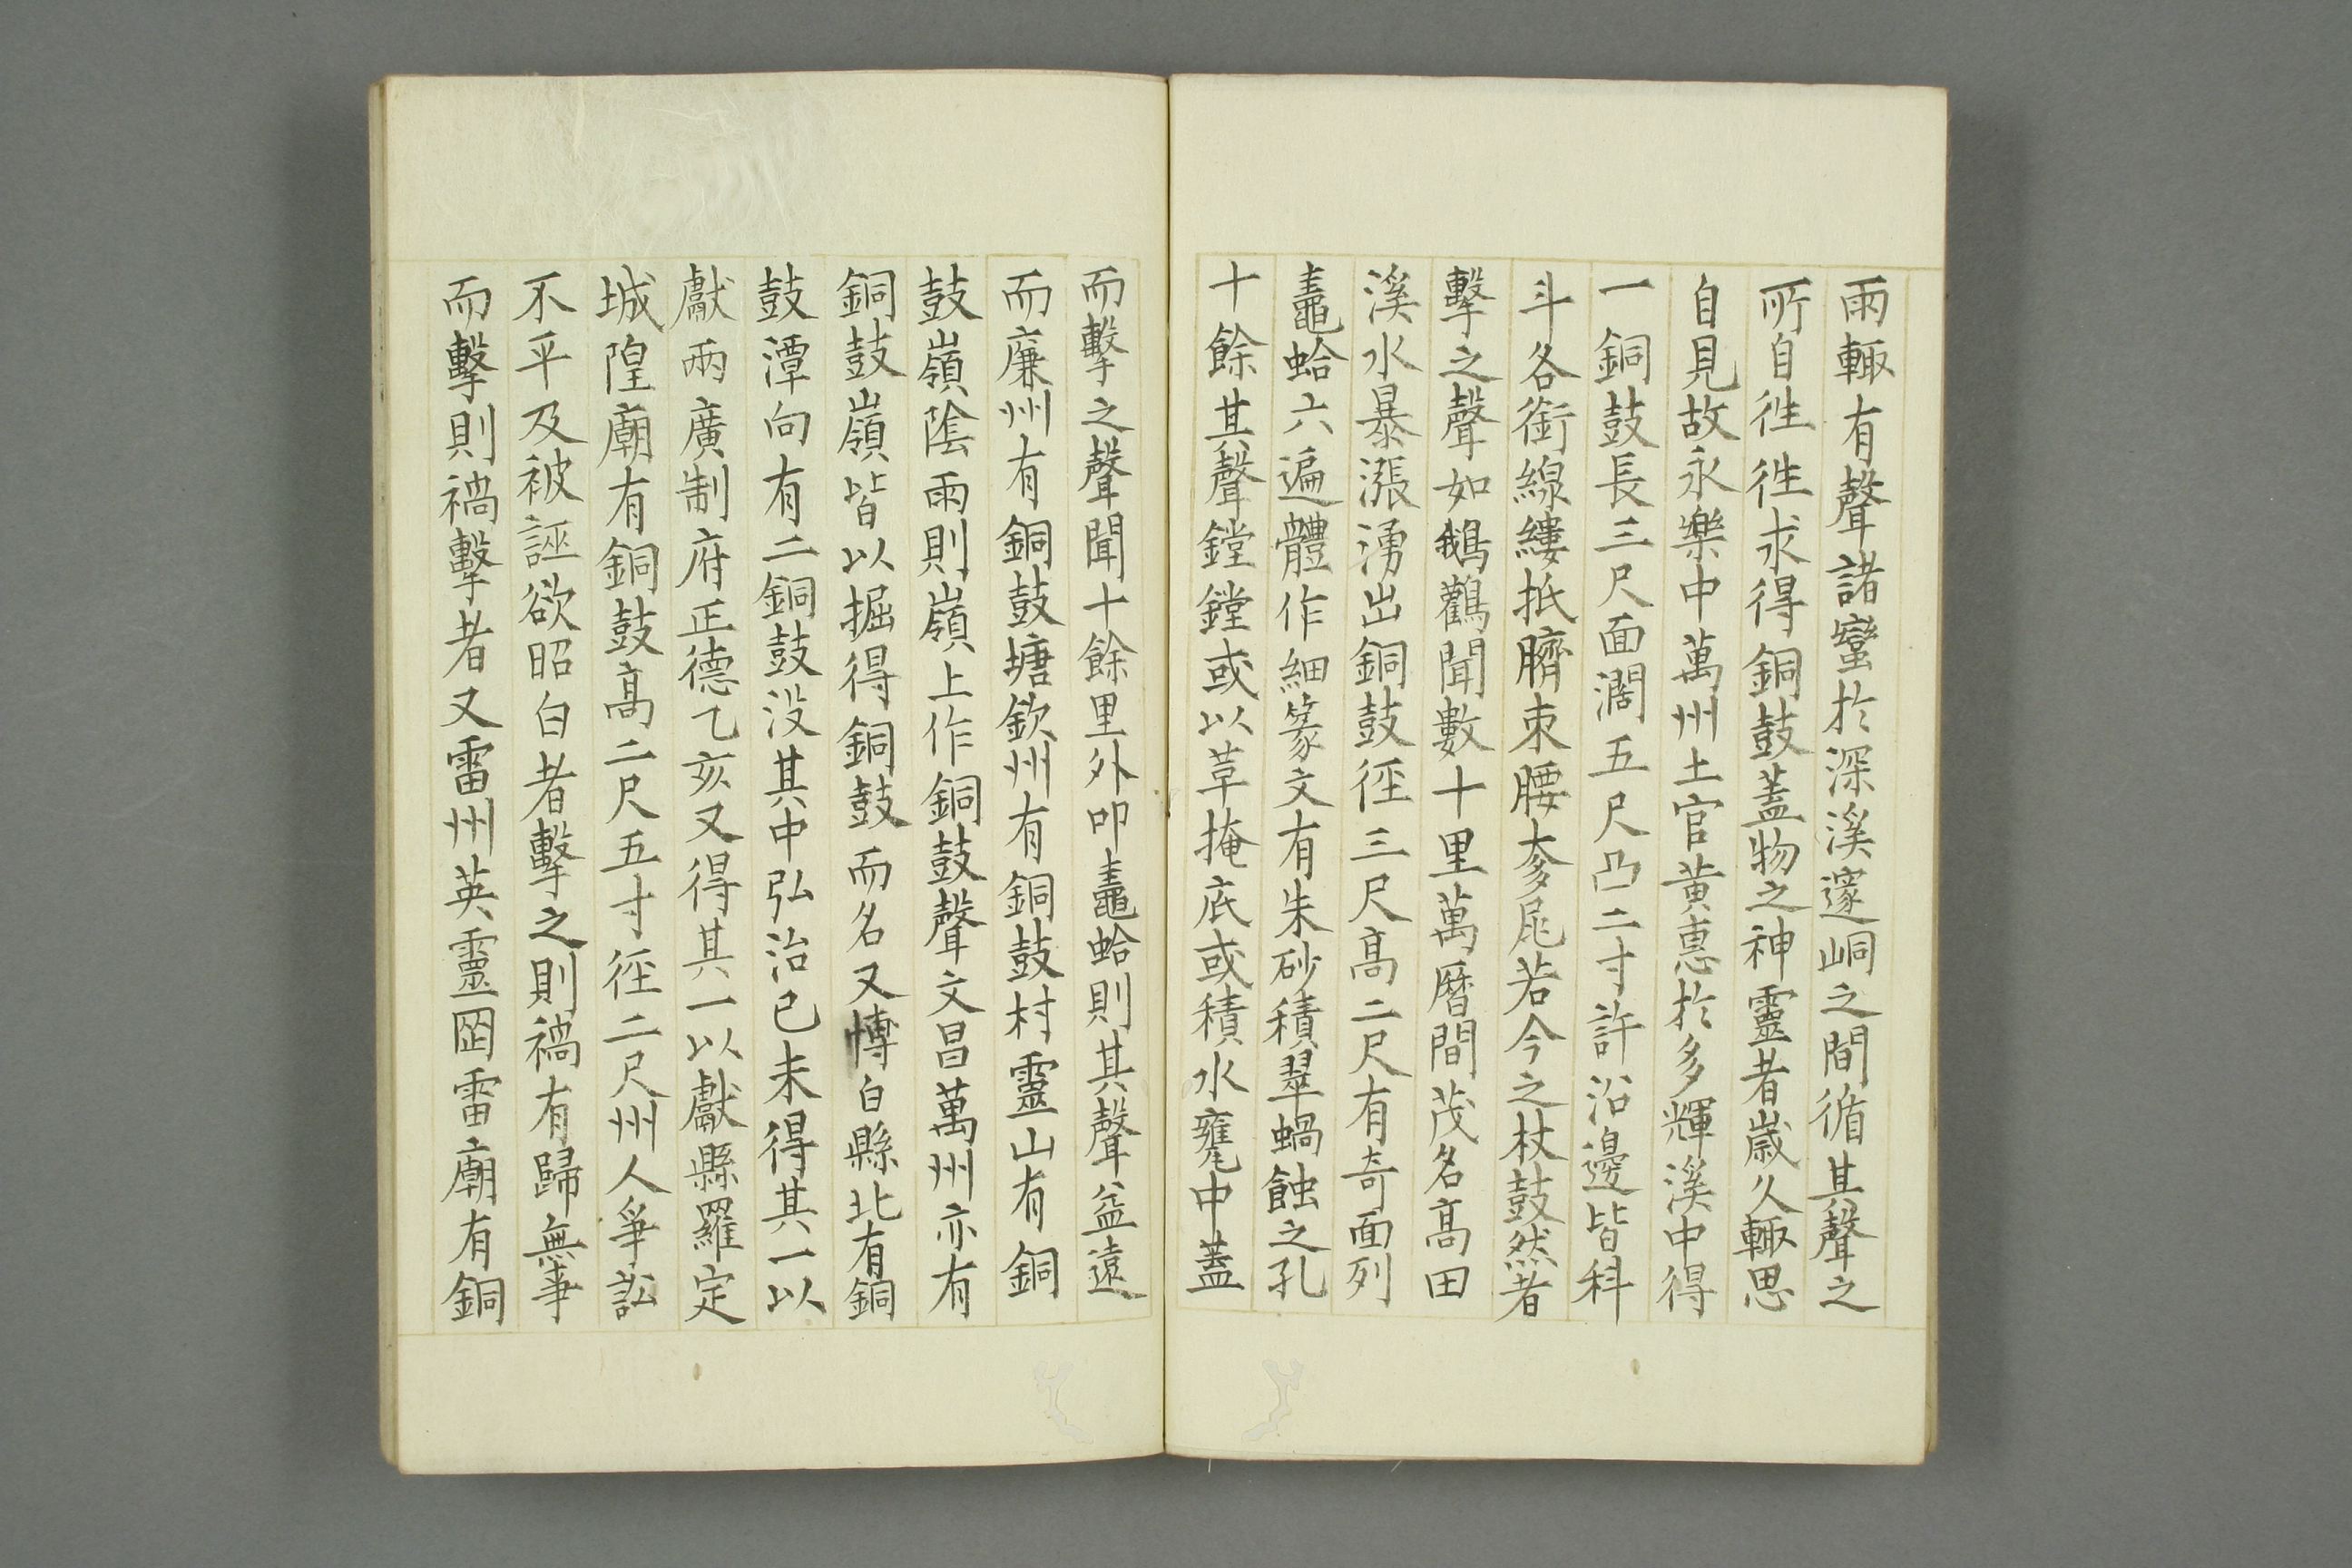 雨輙有聲諸蠻於深溪邃峒之間循其聲之
所自徃徃求得銅鼓蓋物之神靈者歲久輙思
自見故永樂中萬州土官黃惠於多輝溪中得
一銅鼓長三尺面濶五尺凸二寸許沿邊皆科
斗各銜線縷抵臍束腰奓尾若今之杖鼓然者
擊之聲如鵝鸛聞數十里萬曆間茂名高田
溪水暴漲湧出銅鼓徑三尺高二尺有奇面列
鼃蛤六遍體作細篆文有朱砂積翠蝸蝕之孔
十餘其聲鏜鏜或以草掩底或積水甕中蓋
而擊之聲聞十餘里外叩鼃蛤則其聲益遠
而廉州有銅鼓塘欽州有銅鼓村靈山有銅
鼓嶺陰雨則嶺上作銅鼓聲文昌萬州亦有
銅鼓嶺皆以掘得銅鼓而名又博白縣北有銅
鼓潭向有二銅鼓没其中弘治己未得其一以
獻兩廣制府正德乙亥又得其一以獻縣羅定
城隍廟有銅鼓高二尺五寸徑二尺州人爭訟
不平及被誣欲昭白者擊之則禍有歸無事
而擊則禍擊者又雷州英靈岡雷廟有銅